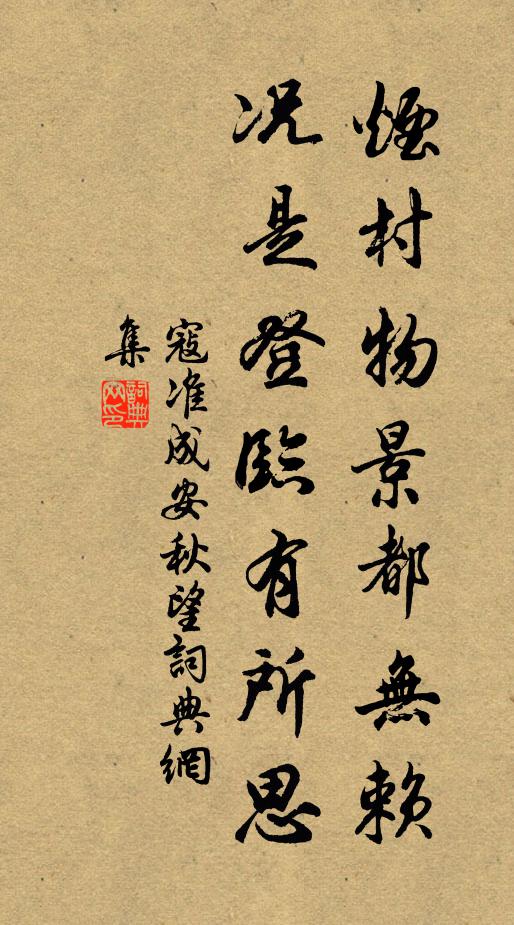 煙村物景都無賴
况是登臨有所思
寇准成安秋望詞典網
集
詞典網印